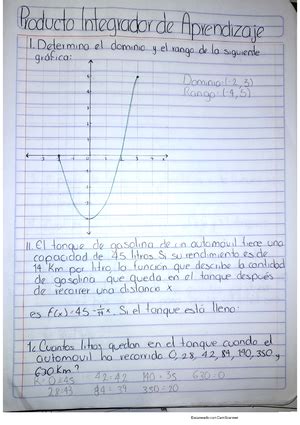 Producto Integrador de Aprendizaje
I. Determina el dominio y el rango de la siguiente
gráfica:
Dominio: (-2, 3)
Rango: (-4, 5)
II. El tanque de gasolina de un automovil tiene una
capacidad de 45 litros. Si su rendimiento es de
14 Km por litro, la función que describe la cantidad
de gasolina que queda en el tanque después
de recorrer una distancia x
es F(x)=45-x/14. Si el tanque está lleno:
1¿ Cuantos litros quedan en el tanque cuando el
automovil ha recorrido 0, 28, 42, 84, 140, 350 y
630 Km?
0=45 42=42 140=35 630=0
28=43 84=39 350=20
Escaneado con CamScanner